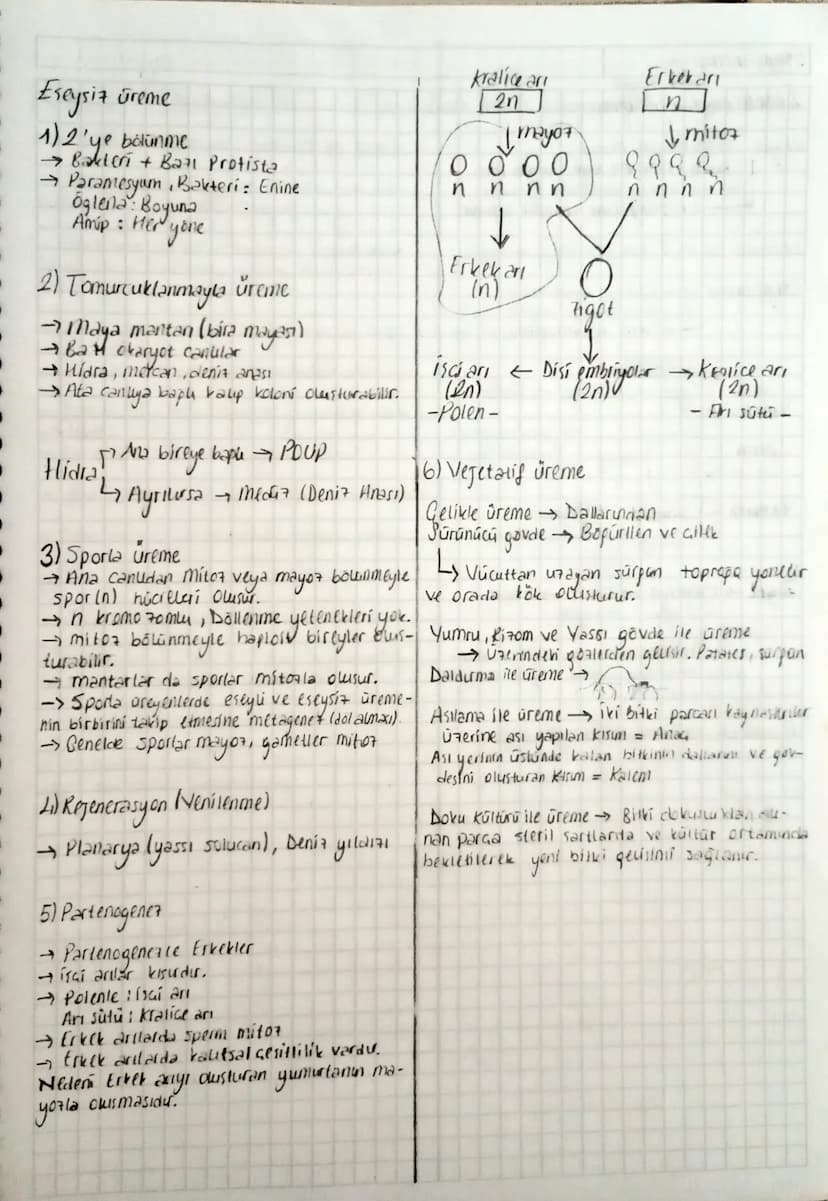 Eşeysiz üreme
1) 2'ye bölünme
→ Bakteri + Bazı Protista
→ Paramesyum, Bakteri: Enine
Öglena: Boyuna
Amip: Her yöne
2) Tomurcuklanmayla üreme
→ Maya mantarı (bira mayası)
→ Bazı ökaryot canlılar
→ Hidra, mercan, deniz anası
→ Ata canlıya bağlı kalıp koloni oluşturabilir.
Hidra
→ Ana bireye bağlı → POLİP
→ Ayrılırsa → Medüz (Deniz Anası)
3) Sporla üreme
→ Ana canlıdan Mitoz veya mayoz bölünmeyle
spor(n) hücreleri oluşur.
→ n kromozomlu, Döllenme yetenekleri yok.
→ mitoz bölünmeyle haploit bireyler oluş-
turabilir.
→ mantarlar da sporlar mitozla oluşur.
→ Sporla üreyenlerde eşeyli ve eşeysiz üreme-
nin birbirini takip etmesine metagenez (döl almaşı).
→ Genelde sporlar mayoz, gametler mitoz
4) Rejenerasyon (Yenilenme)
→ Planarya (yassı solucan), Deniz yıldızı
5) Partenogenez
→ Partenogenezle Erkekler
→ işçi arılar kısırdır.
→ Polenle: işçi arı
Arı sütü: Kraliçe arı
→ Erkek arılarda sperm mitoz
→ Erkek arılarda kalıtsal çeşitlilik vardır.
Nedeni Erkek arıyı oluşturan yumurtanın ma-
yozla oluşmasıdır.
Kraliçe arı Erkek arı
2n n
mayoz mitoz
n n n n n n n n
Erkek arı
(n)
zigot
İşçi arı ← Dişi embriyolar → Kraliçe arı
(2n) (2n) (2n)
-Polen- - Arı sütü -
6) Vejetatif üreme
Çelikle üreme → Dallarından
Sürünücü gövde → Böğürtlen ve çilek
→ Vücuttan uzayan sürgün toprağa yönelir
ve orada kök oluşturur.
Yumru, Rizom ve Yassı gövde ile üreme
→ Üzerindeki gözlerden gelişir. Patates, sürgün
Daldırma ile üreme →
Aşılama ile üreme → iki bitki parçası kaynaştırılır
Üzerine aşı yapılan kısım = Anaç
Aşı yerinin üstünde kalan bitkinin dallarını ve göv-
desini oluşturan kısım = Kalem
Doku kültürü ile üreme → Bitki dokusundan alı-
nan parça steril şartlarda ve kültür ortamında
bekletilerek yeni bitki gelişimi sağlanır.